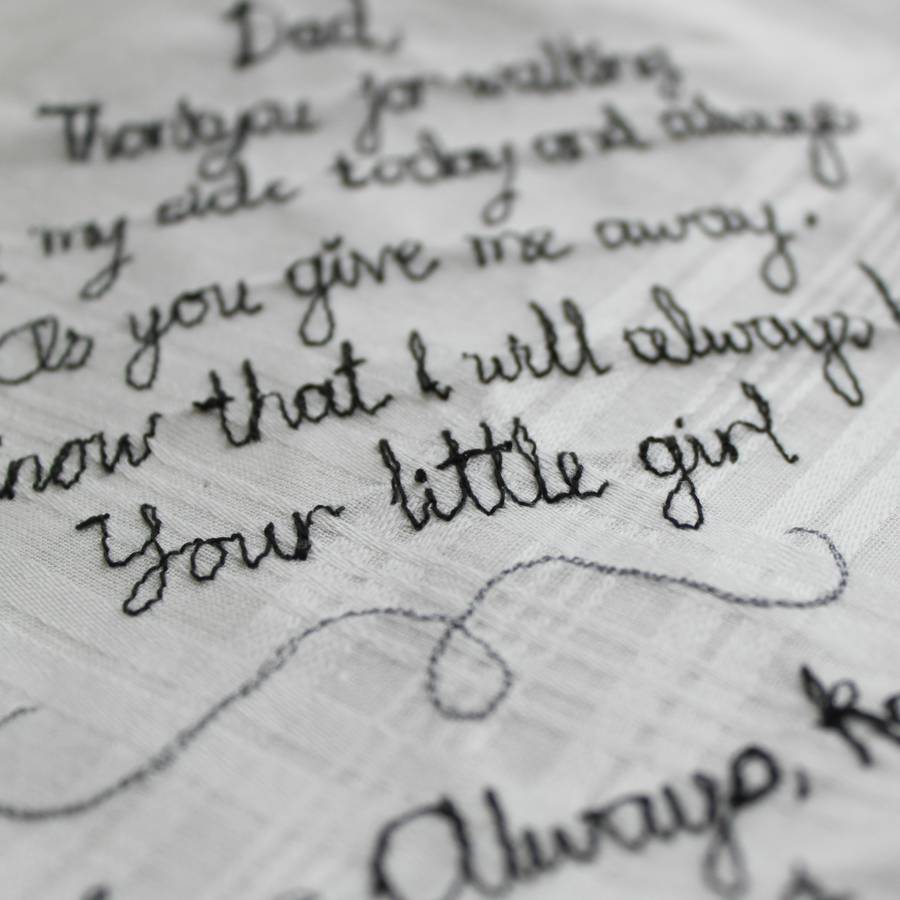 Dad,
Thankyou for walking
my side today and always
As you give me away.
know that I will always b
Your little girl
Always, Ka